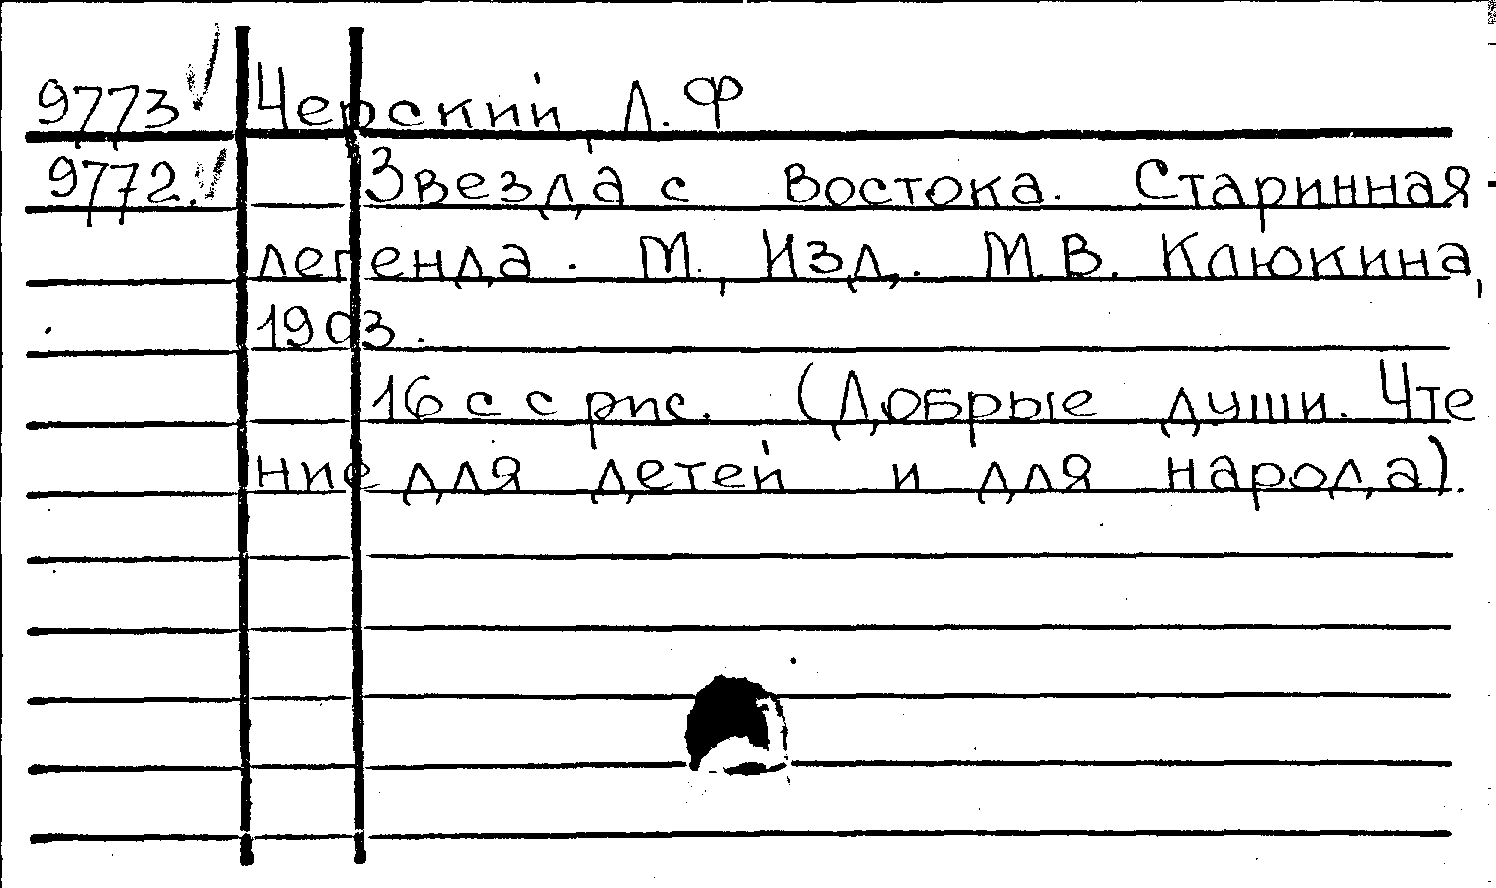 9773 Черский, Л. Ф
9772. Звезда с востока. Старинная
легенда. М., Изд. М. В. Клюкина,
1903.
16 с с рис. (Добрые души. Чте
ние для детей и для народа).